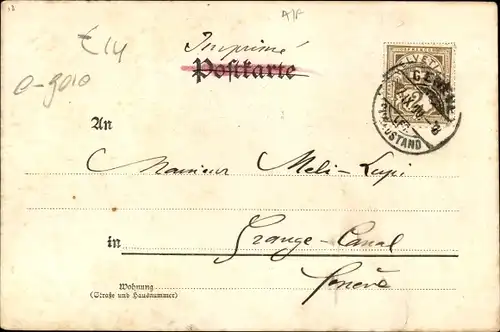 Imprimé
Postkarte
HELVETIA
An
Monsieur Meli-Lupi
in
Grange-Canal
Genève
Wohnung
(Straße und Hausnummer)